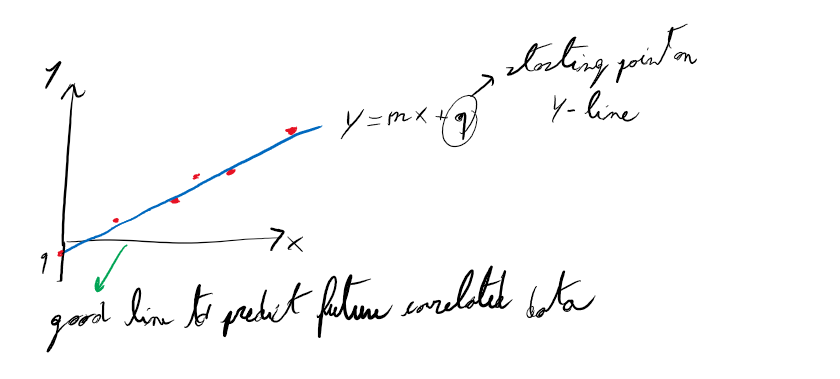 Y
y = mx + q
starting point on
Y-line
x
q
good line to predict future correlated data